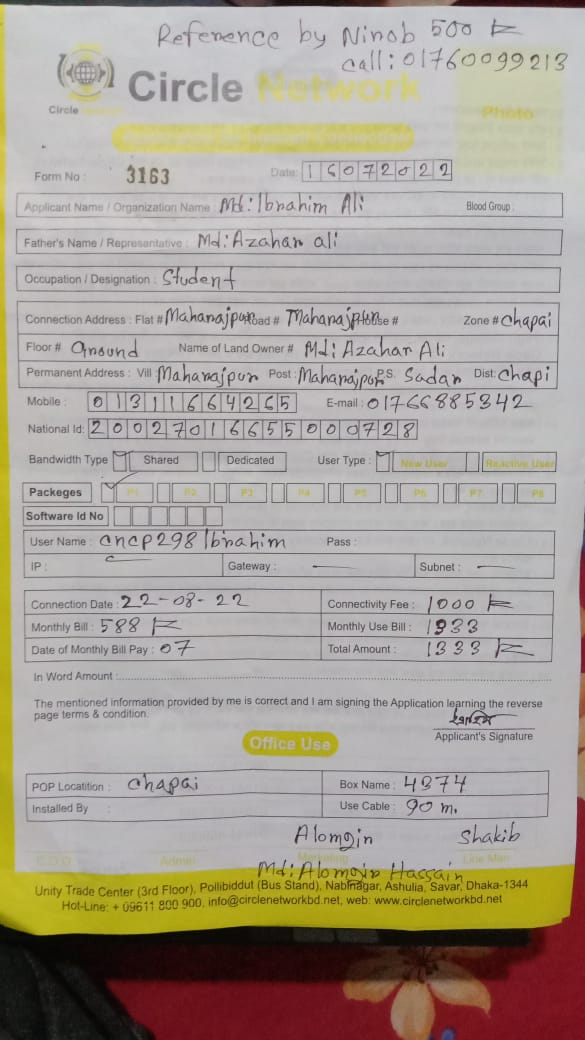 Reference by Ninob 500 tk
call: 01760099213
Circle Network
Circle Network
Photo
Form No : 3163 Date: 16072022
Applicant Name / Organization Name : Md: Ibrahim Ali Blood Group :
Father's Name / Representative : Md: Azahar ali
Occupation / Designation : Student
Connection Address : Flat # Maharajpur Road # Maharajpur House # Zone # Chapai
Floor # Ground Name of Land Owner # Md: Azahar Ali
Permanent Address : Vill Maharajpur Post : Maharajpur P.S. Sadar Dist: Chapi
Mobile : 01311664265 E-mail : 01766885342
National Id: 20027016655000728
Bandwidth Type Shared Dedicated User Type : New User Reactive User
Packeges P1 P2 P3 P4 P5 P6 P7 P8
Software Id No
User Name : cncp298 Ibrahim Pass :
IP : Gateway : Subnet :
Connection Date : 22-08-22 Connectivity Fee : 1000 tk
Monthly Bill : 588 tk Monthly Use Bill : 1333
Date of Monthly Bill Pay : 07 Total Amount : 1333 tk
In Word Amount :
The mentioned information provided by me is correct and I am signing the Application learning the reverse
page terms & condition.
Applicant's Signature
Office Use
POP Locatition : Chapai Box Name : 4374
Installed By : Use Cable : 90 m.
Alomgin Shakib
C.D.O Admin Marketing Line Man
Md: Alomgir Hassain
Unity Trade Center (3rd Floor), Pollibiddut (Bus Stand), Nabinagar, Ashulia, Savar, Dhaka-1344
Hot-Line: + 09611 800 900, info@circlenetworkbd.net, web: www.circlenetworkbd.net